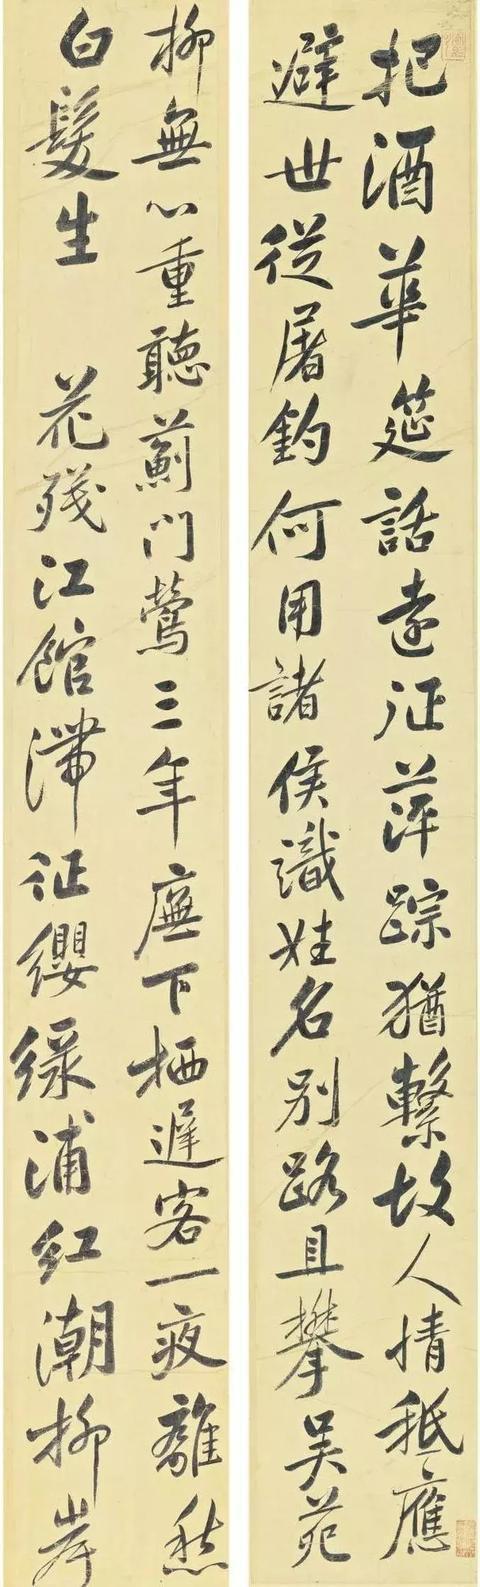 把酒華筵話遠征萍踪猶繫故人情秖應
避世從屠釣何用諸侯識姓名別路且攀吴苑
柳無心重聽薊門鶯三年廡下栖遲客一夜離愁
白髮生　花殘江館滯征纓綠浦紅潮柳岸